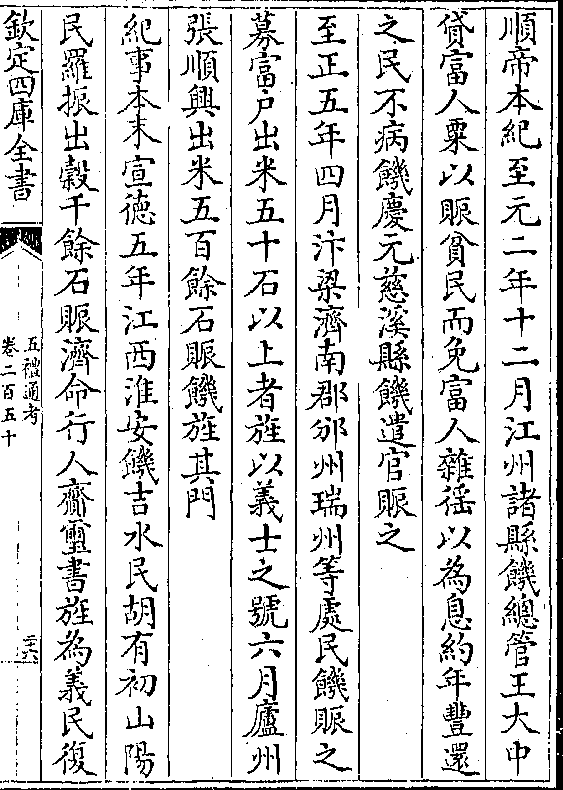 順帝本紀至元二年十二月江州諸縣饑總管王大中
貸富人粟以賑貧民而免富人雜徭以為息約年豐還
之民不病饑慶元慈溪縣饑遣官賑之
至正五年四月汴梁濟南郡邠州瑞州等處民饑賑之
募富户出米五十石以上者旌以義士之號六月廬州
張順興出米五百餘石賑饑旌其門
紀事本末宣徳五年江西淮安饑吉水民胡有初山陽
民羅振出穀千餘石賑濟命行人齎璽書旌為義民復
欽定四庫全書
五禮通考
卷二百五十
三六